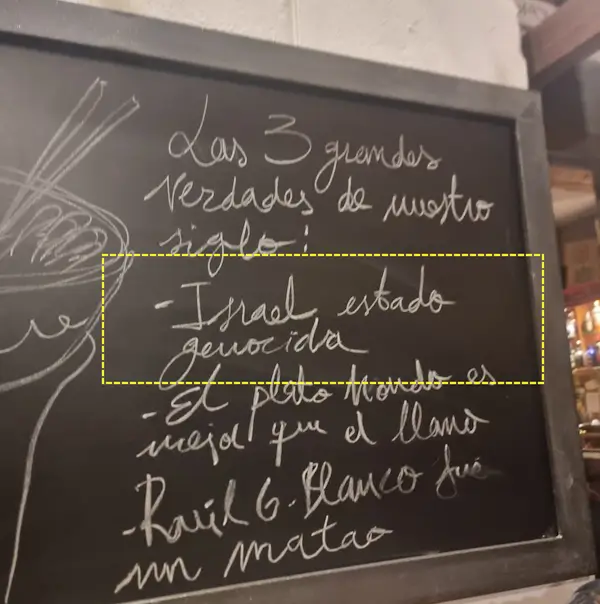 Las 3 grandes
verdades de nuestro
siglo:
- Israel, estado
genocida
- El plato hondo es
mejor que el llano
- Raúl G. Blanco fue
un matao